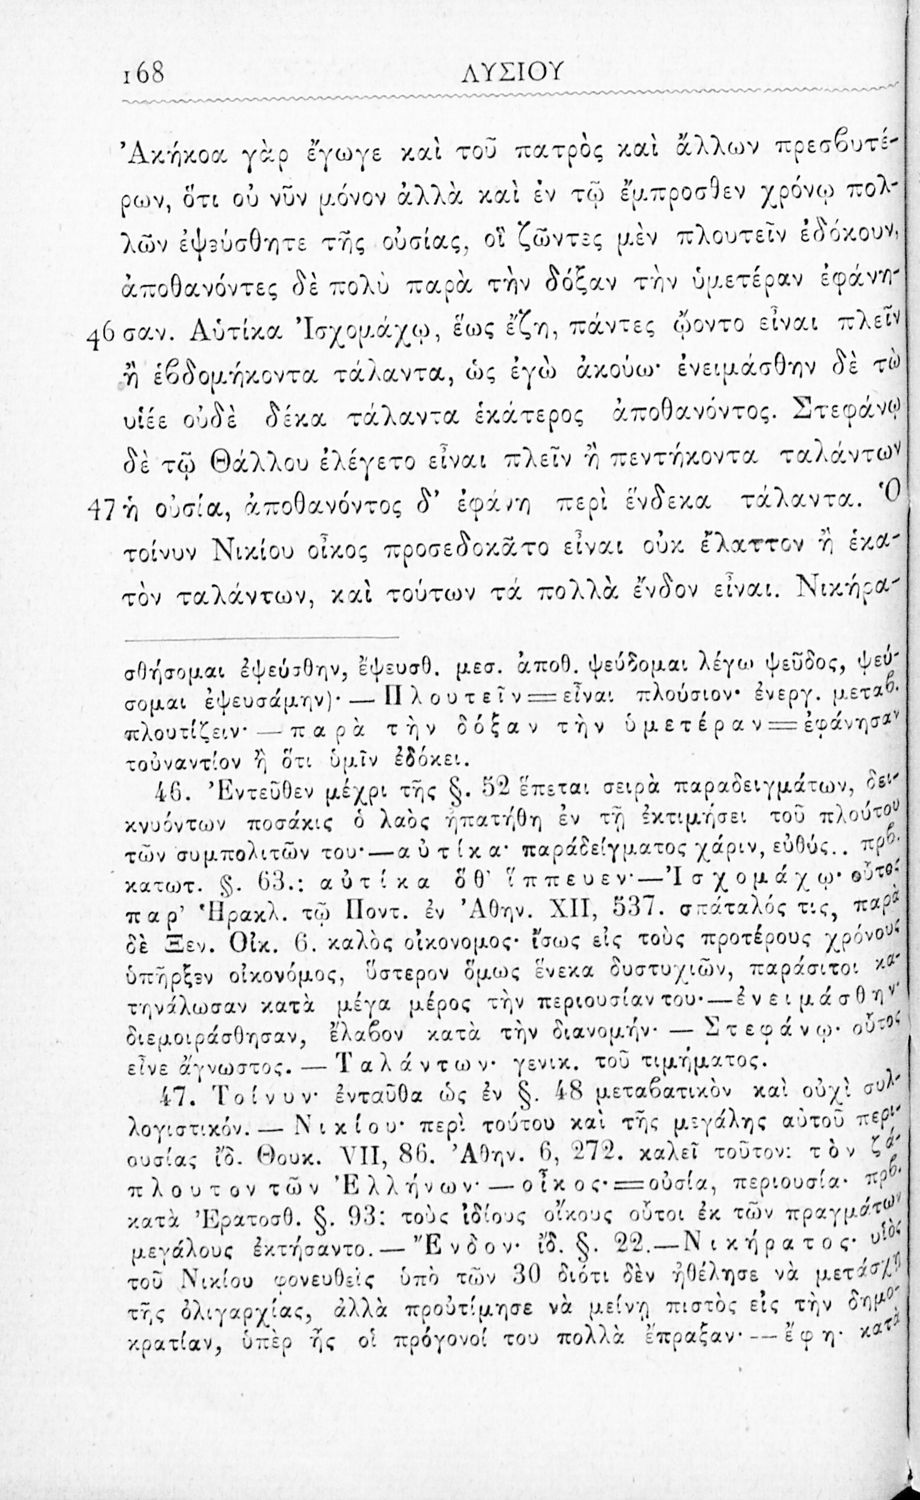 168 ΛΥΣΙΟΥ
Ἀκήκοα γὰρ ἔγωγε καὶ τοῦ πατρὸς καὶ ἄλλων πρεσϐυτέ-
ρων, ὅτι οὐ νῦν μόνον ἀλλὰ καὶ ἐν τῷ ἔμπροσθεν χρόνῳ πολ-
λῶν ἐψεύσθητε τῆς οὐσίας, οἳ ζῶντες μὲν πλουτεῖν ἐδόκουν,
ἀποθανόντες δὲ πολὺ παρὰ τὴν δόξαν τὴν ὑμετέραν ἐφάνη-
46 σαν. Αὐτίκα Ἰσχομάχῳ, ἕως ἔζη, πάντες ᾤοντο εἶναι πλεῖν
ἢ ἑϐδομήκοντα τάλαντα, ὡς ἐγὼ ἀκούω· ἐνειμάσθην δὲ τὼ
υἱέε οὐδὲ δέκα τάλαντα ἑκάτερος ἀποθανόντος. Στεφάνῳ
δὲ τῷ Θάλλου ἐλέγετο εἶναι πλεῖν ἢ πεντήκοντα ταλάντων
47 ἡ οὐσία, ἀποθανόντος δ' ἐφάνη περὶ ἕνδεκα τάλαντα. Ὁ
τοίνυν Νικίου οἶκος προσεδοκᾶτο εἶναι οὐκ ἔλαττον ἢ ἑκα-
τὸν ταλάντων, καὶ τούτων τὰ πολλὰ ἔνδον εἶναι. Νικήρα-
σθήσομαι ἐψεύσθην, ἔψευσθ. μεσ. ἀποθ. ψεύδομαι λέγω ψεῦδος, ψεύ-
σομαι ἐψευσάμην)· — Πλουτεῖν = εἶναι πλούσιον· ἐνεργ. μεταϐ.
πλουτίζειν· — παρὰ τὴν δόξαν τὴν ὑμετέραν = ἐφάνησαν
τοὐναντίον ἢ ὅτι ὑμῖν ἐδόκει.
46. Ἐντεῦθεν μέχρι τῆς §. 52 ἕπεται σειρὰ παραδειγμάτων, δει-
κνυόντων ποσάκις ὁ λαὸς ἠπατήθη ἐν τῇ ἐκτιμήσει τοῦ πλούτου
τῶν συμπολιτῶν του·— αὐτίκα· παραδείγματος χάριν, εὐθύς.. πρϐ.
κατωτ. §. 63.: αὐτίκα ὅθ' ἵππευεν·—Ἰσχομάχῳ· οὗτος
παρ' Ἡρακλ. τῷ Ποντ. ἐν Ἀθην. XII, 537. σπάταλός τις, παρὰ
δὲ Ξεν. Οἰκ. 6. καλὸς οἰκονομος· ἴσως εἰς τοὺς προτέρους χρόνους
ὑπῆρξεν οἰκονόμος, ὕστερον ὅμως ἕνεκα δυστυχιῶν, παράσιτοι κα-
τηνάλωσαν κατὰ μέγα μέρος τὴν περιουσίαν του·—ἐνειμάσθην·
διεμοιράσθησαν, ἔλαϐον κατὰ τὴν διανομήν· — Στεφάνῳ· οὗτος
εἶνε ἄγνωστος. — Ταλάντων· γενικ. τοῦ τιμήματος.
47. Τοίνυν· ἐνταῦθα ὡς ἐν §. 48 μεταϐατικὸν καὶ οὐχὶ συλ-
λογιστικόν. — Νικίου· περὶ τούτου καὶ τῆς μεγάλης αὐτοῦ περι-
ουσίας ἰδ. Θουκ. VII, 86. Ἀθην. 6, 272. καλεῖ τοῦτον: τὸν ζά-
πλουτον τῶν Ἑλλήνων· — οἶκος· = οὐσία, περιουσία· πρϐ.
κατὰ Ἐρατοσθ. §. 93: τοὺς ἰδίους οἴκους οὗτοι ἐκ τῶν πραγμάτων
μεγάλους ἐκτήσαντο. — Ἔνδον· ἰδ. §. 22.—Νικήρατος· υἱὸς
τοῦ Νικίου φονευθεὶς ὑπὸ τῶν 30 διότι δὲν ἠθέλησε νὰ μετάσχῃ
τῆς ὀλιγαρχίας, ἀλλὰ προὐτίμησε νὰ μείνῃ πιστὸς εἰς τὴν δημο-
κρατίαν, ὑπὲρ ἧς οἱ πρόγονοί του πολλὰ ἔπραξαν· — ἔφη· κατὰ